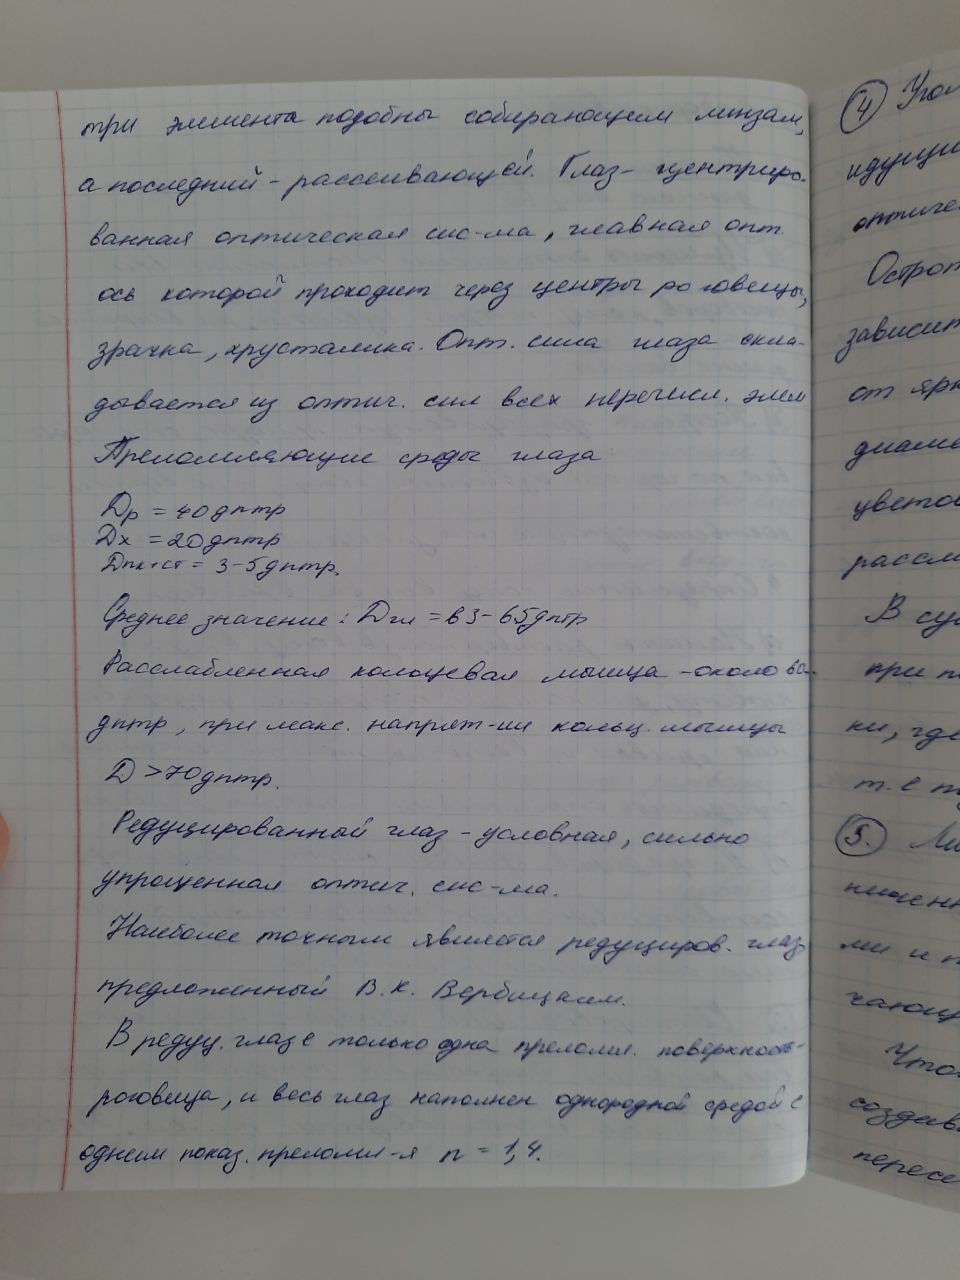 три элемента подобны собирающим линзам,
а последний - рассеивающей. Глаз - центриро-
ванная оптическая сис-ма, главная опт.
ось которой проходит через центры роговицы,
зрачка, хрусталика. Опт. сила глаза скла-
дывается из оптич. сил всех перечисл. элем
Преломляющие среды глаза
Dр = 40 дптр
Dх = 20 дптр
Dпк+ст = 3-5 дптр.
Среднее значение: Dгл = 63-65 дптр
Расслабленная кольцевая мышца - около 60
дптр, при макс. напряж-ии кольц. мышцы
D > 70 дптр.
Редуцированный глаз - условная, сильно
упрощенная оптич. сис-ма.
Наиболее точным является редуциров. глаз
предложенный В.К. Вербицким.
В редуц. глазе только одна преломл. поверхность -
роговица, и весь глаз наполнен однородной средой с
одним показ. преломл-я n = 1,4.
4 Угол
идущи
оптиче
Острот
зависит
от ярк
диаме
цветов
рассл
В су
при п
ки, где
т.е
5.
ми и п
чающ
Что
создав
пересе